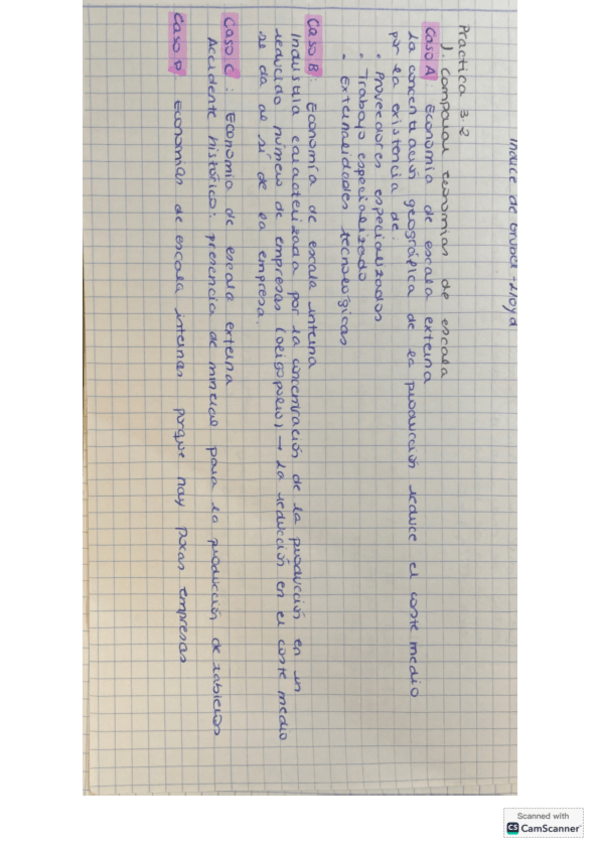 Indice de Grubel-Lloyd
Practica 3.2
1. Comparar economias de escala
Caso A: Economia de escala externa
La concentración geográfica de la producción reduce el coste medio
por la existencia de:
• Proveedores especializados
• Trabajo especializado
• Externalidades tecnológicas
Caso B: Economía de escala interna
Industria caracterizada por la concentración de la producción en un
reducido número de empresas (oligopolio) → La reducción en el coste medio
se da de la empresa.
Caso C: Economia de escala externa
Accidente histórico: presencia de mineral para la producción de
Caso D: Economias de escala internas porque hay pocas empresas
Scanned with
CS CamScanner